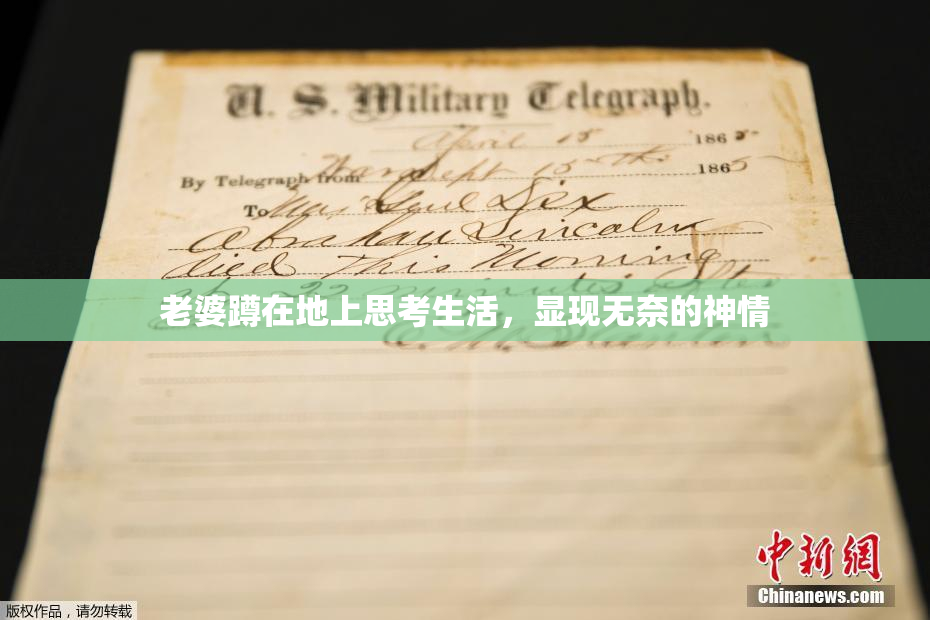 U. S. Military Telegraph.
April 15 1865
By Telegraph from War Dept 15th 1865
To Maj Genl Dix
Abraham Lincoln
died This Morning
at 22 minutes after
老婆蹲在地上思考生活，显现无奈的神情
中新网
Chinanews.com
版权作品，请勿转载